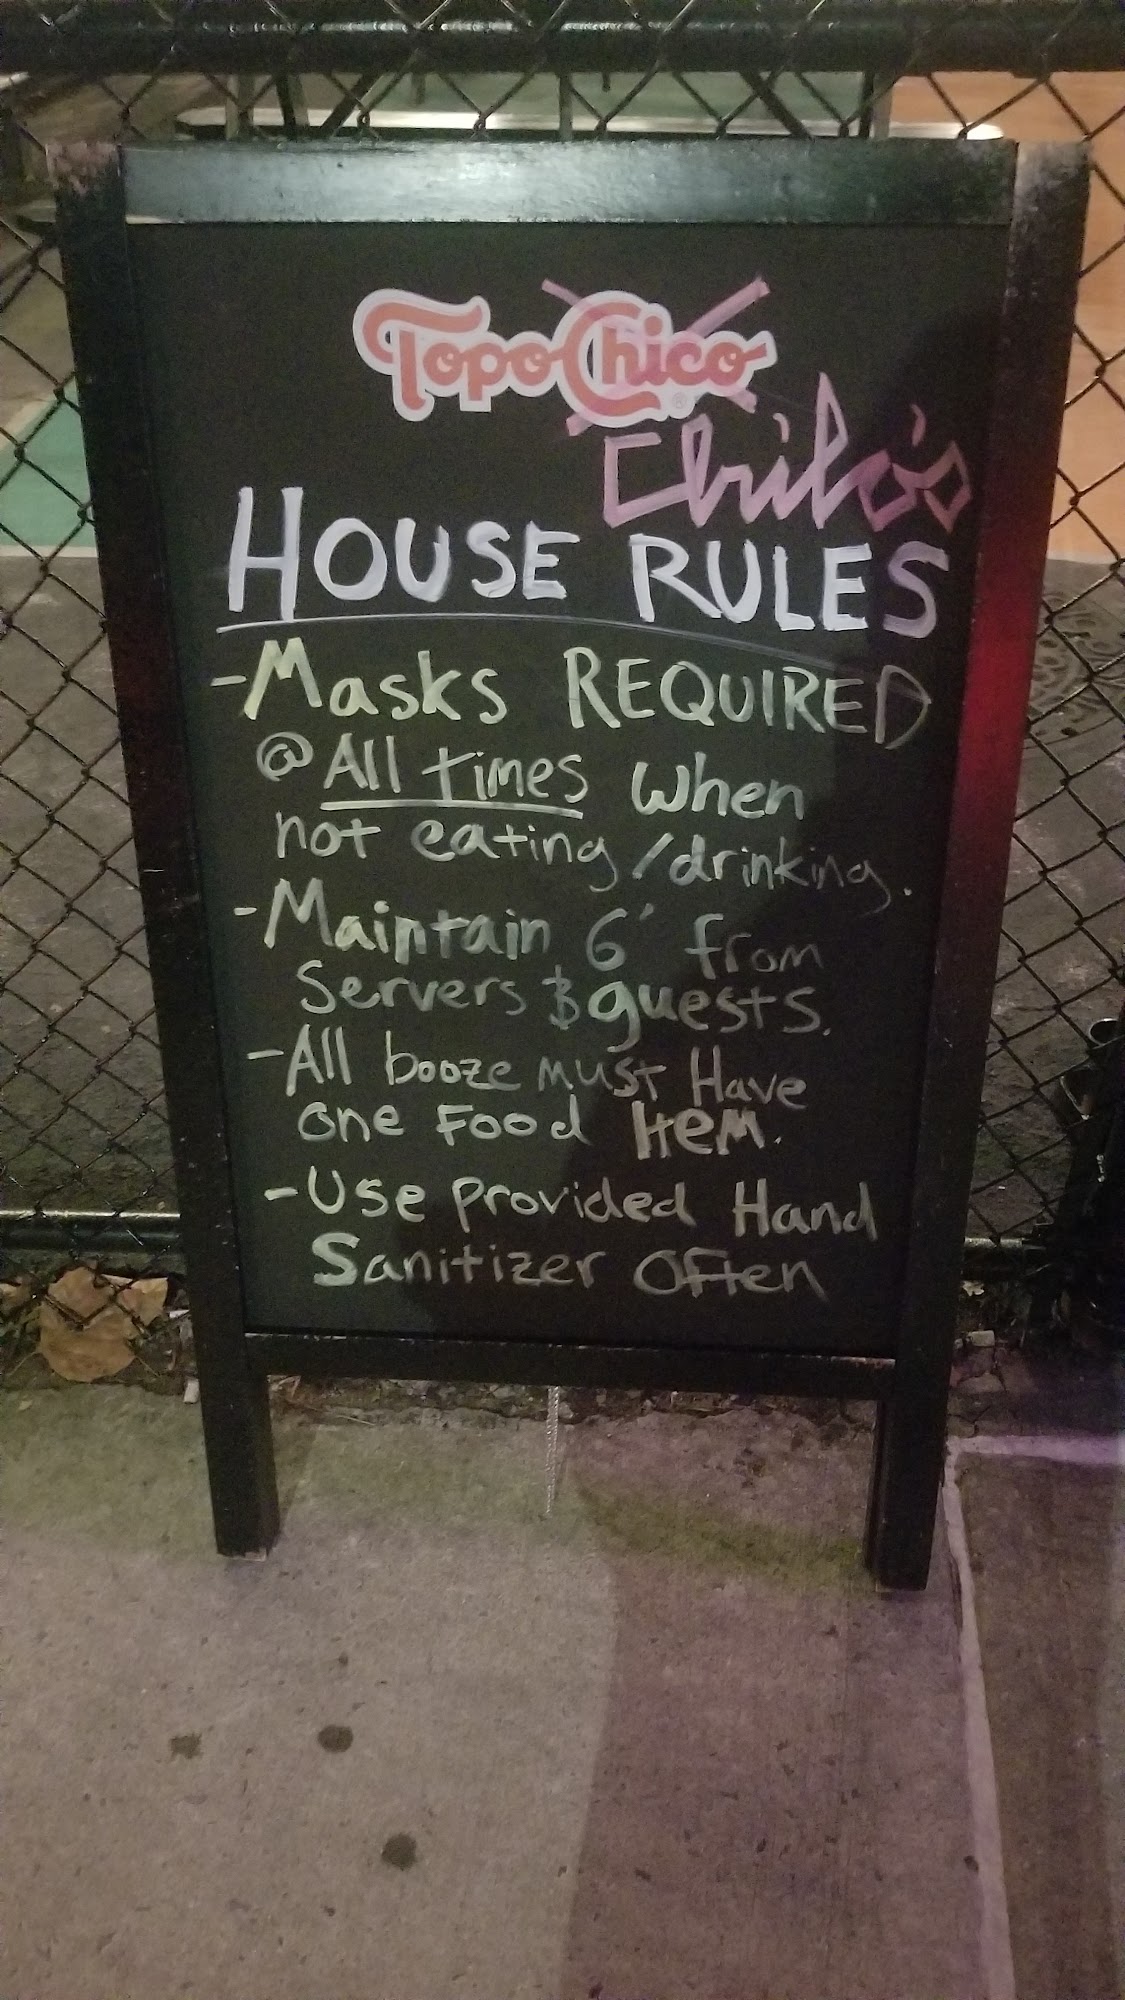 Topo Chico
Chilo's
HOUSE RULES
-Masks REQUIRED
@ All times when
not eating/drinking.
-Maintain 6' from
Servers & guests.
-All booze must Have
one Food Item.
-Use provided Hand
Sanitizer Often